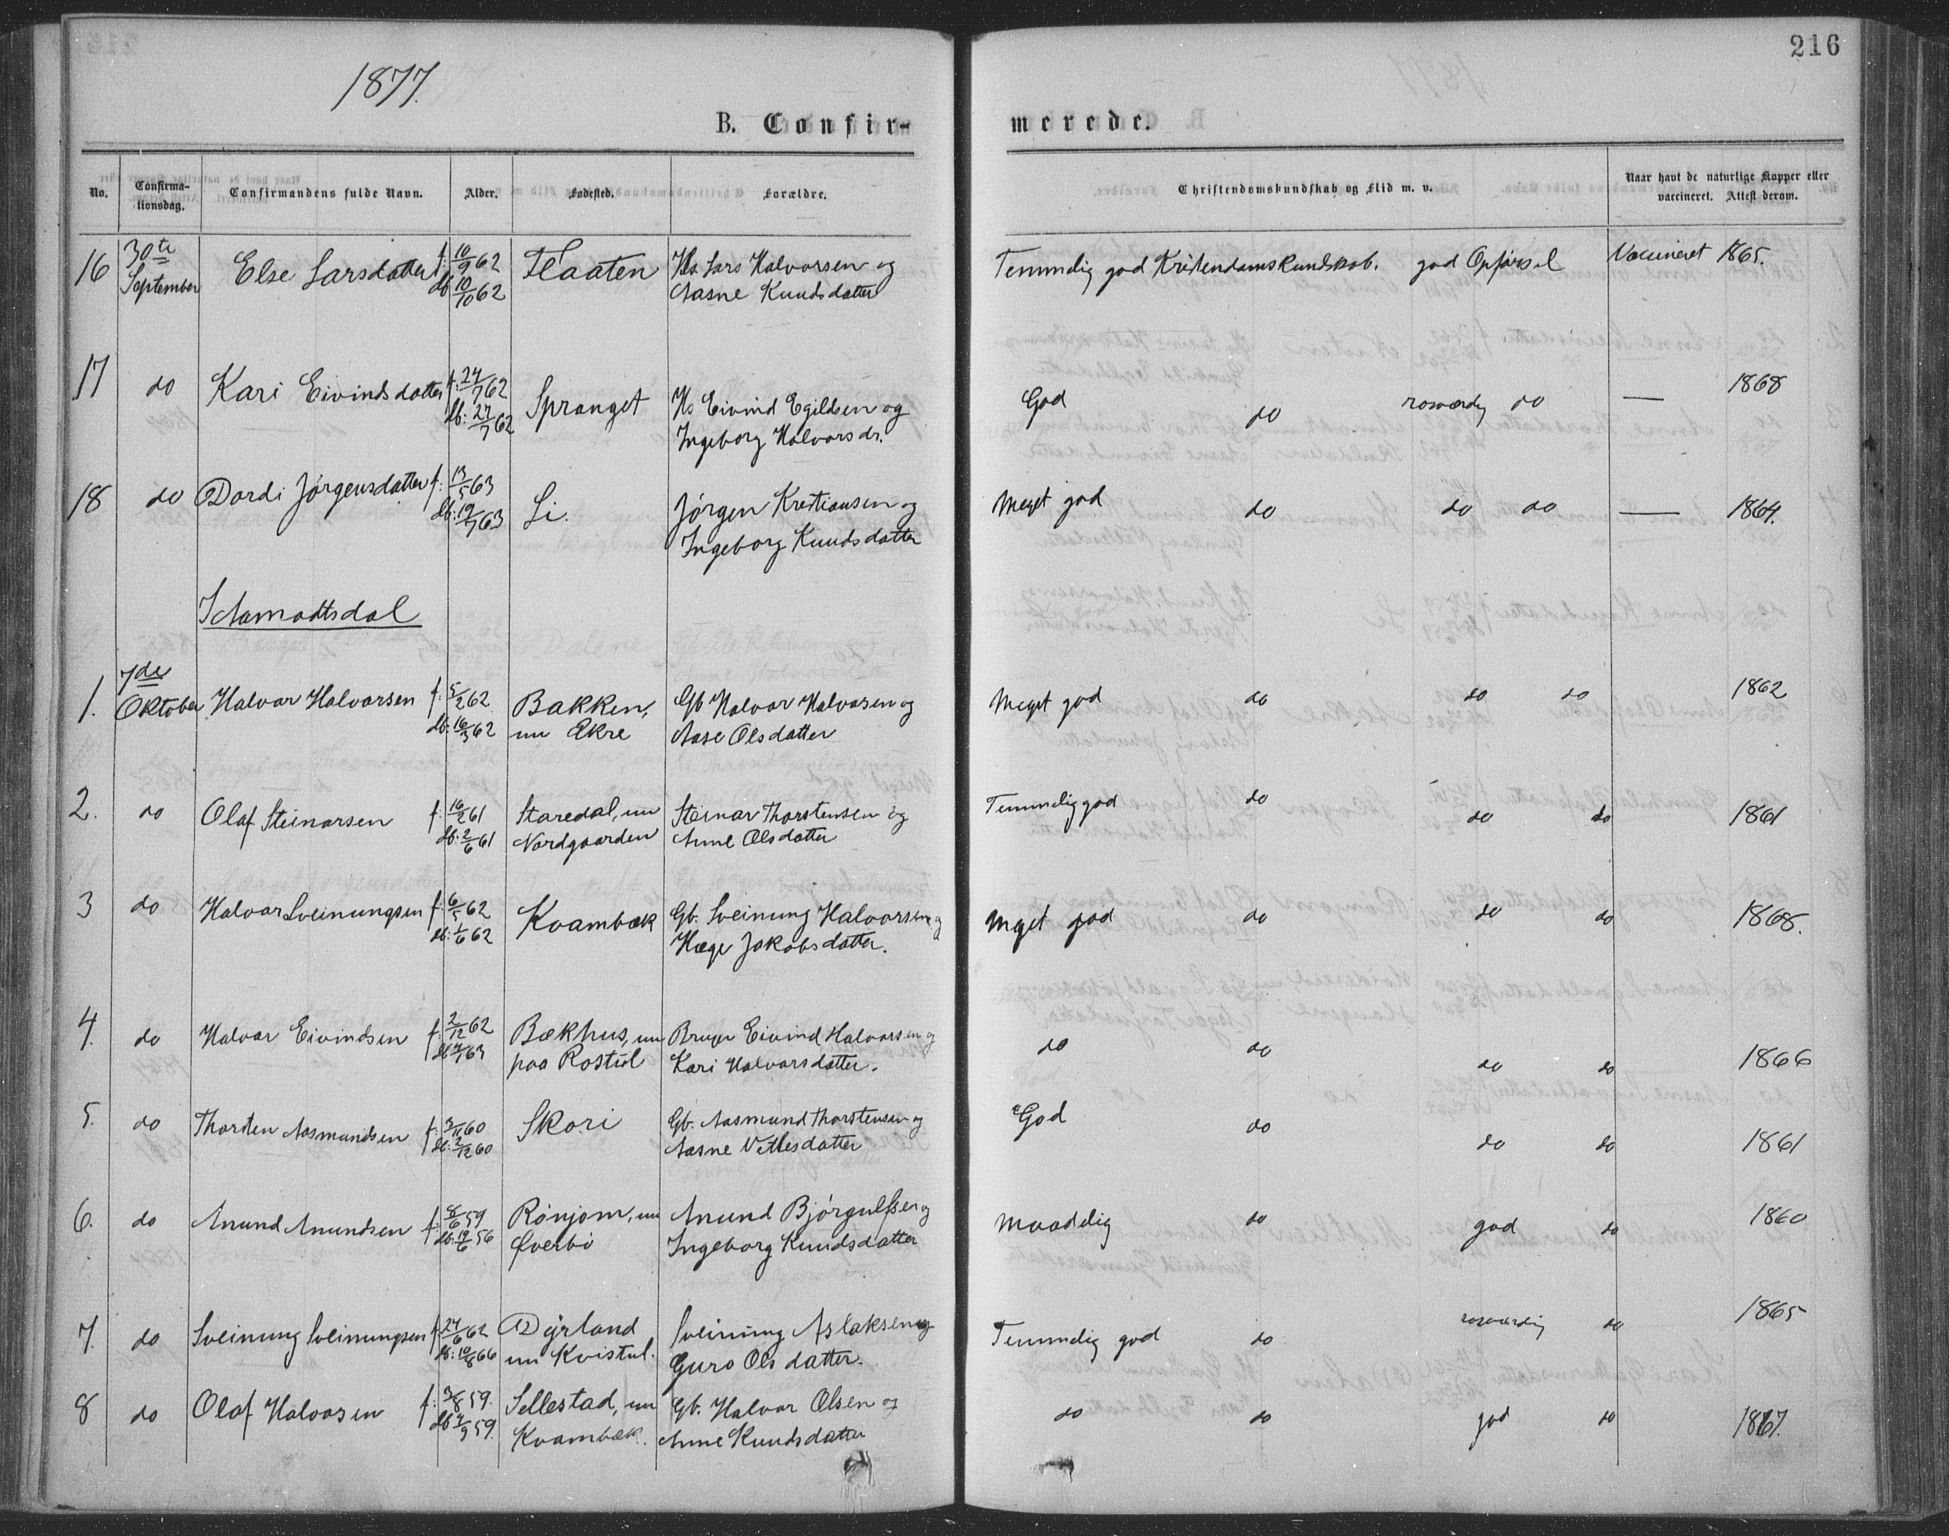 216
1877.
B. Confir-
merede.
No.
Confirma-
tionsdag.
Confirmandens fulde Navn.
Alder.
Fødested.
Forældre.
Christendomskundskab og Flid m. v.
Naar havt de naturlige Kopper eller
vaccineret. Attest derom.
16 30te September Else Larsdatter f: 10/9 62 Flaaten Hs. Lars Halvorsen og Temmelig god Kristendomskundskab. god Opførsel Vaccineret 1865.
db 10/10 62 Aasne Knudsdatter
17 do Kari Eivindsdatter f: 27/7 62 Spranget Hs Eivind Egildsen og God do rosværdig do — 1868
db: 27/7 62 Ingeborg Halvorsdr.
18 do Dordi Jørgensdatter f: 13/5 63 Li. Jørgen Kristiansen og Meget god do do do — 1864.
db: 19/7 63 Ingeborg Knudsdatter
I Aamodtsdal
1. 7de Oktober Halvor Halvorsen f: 5/2 62 Bakken, Gb Halvor Halvorsen og Meget god do do do 1862
db: 16/3 62 nu Ekre Aase Olsdatter
2. do Olaf Steinarsen f: 16/2 61 Staredal, nu Steinar Thorstensen og Temmelig god do do do 1861
db: 2/6 61 Nordgaarden Anne Olsdatter
3 do Halvor Sveinungsen f: 6/5 62 Kvambæk Gb. Sveinung Halvorsen og meget god do do do 1868.
db: 1/6 62 Hæge Jakobsdatter.
4. do Halvor Eivindsen f: 2/12 62 Bækhus, nu Bruger Eivind Halvorsen og do do do do 1866
db /1 63 paa Rostul Kari Halvorsdatter.
5. do Thorsten Aasmundsen f: 3/11 60 Skori Gb. Aasmund Thorstensen og God do do do 1861
db: 2/12 60 Aasne Vetlesdatter
6. do Anund Anundsen f: 8/6 59 Rønjom, nu Anund Bjørgulfsen og maadelig do god do 1860
db: 19/6 56 Øverbø Ingeborg Knudsdatter
7. do Sveinung Sveinungsen f: 24/6 62 Dyrland Sveinung Aslaksen og Temmelig god do rosværdig do 1865
db: 10/8 66 nu Kvistul. Guro Olsdatter.
8 do Olaf Halvorsen f: 3/8 59. Sellestad, nu Gb. Halvor Olsen og do do god do 1867.
db /9 59. Kvambæk. Anne Knudsdatter